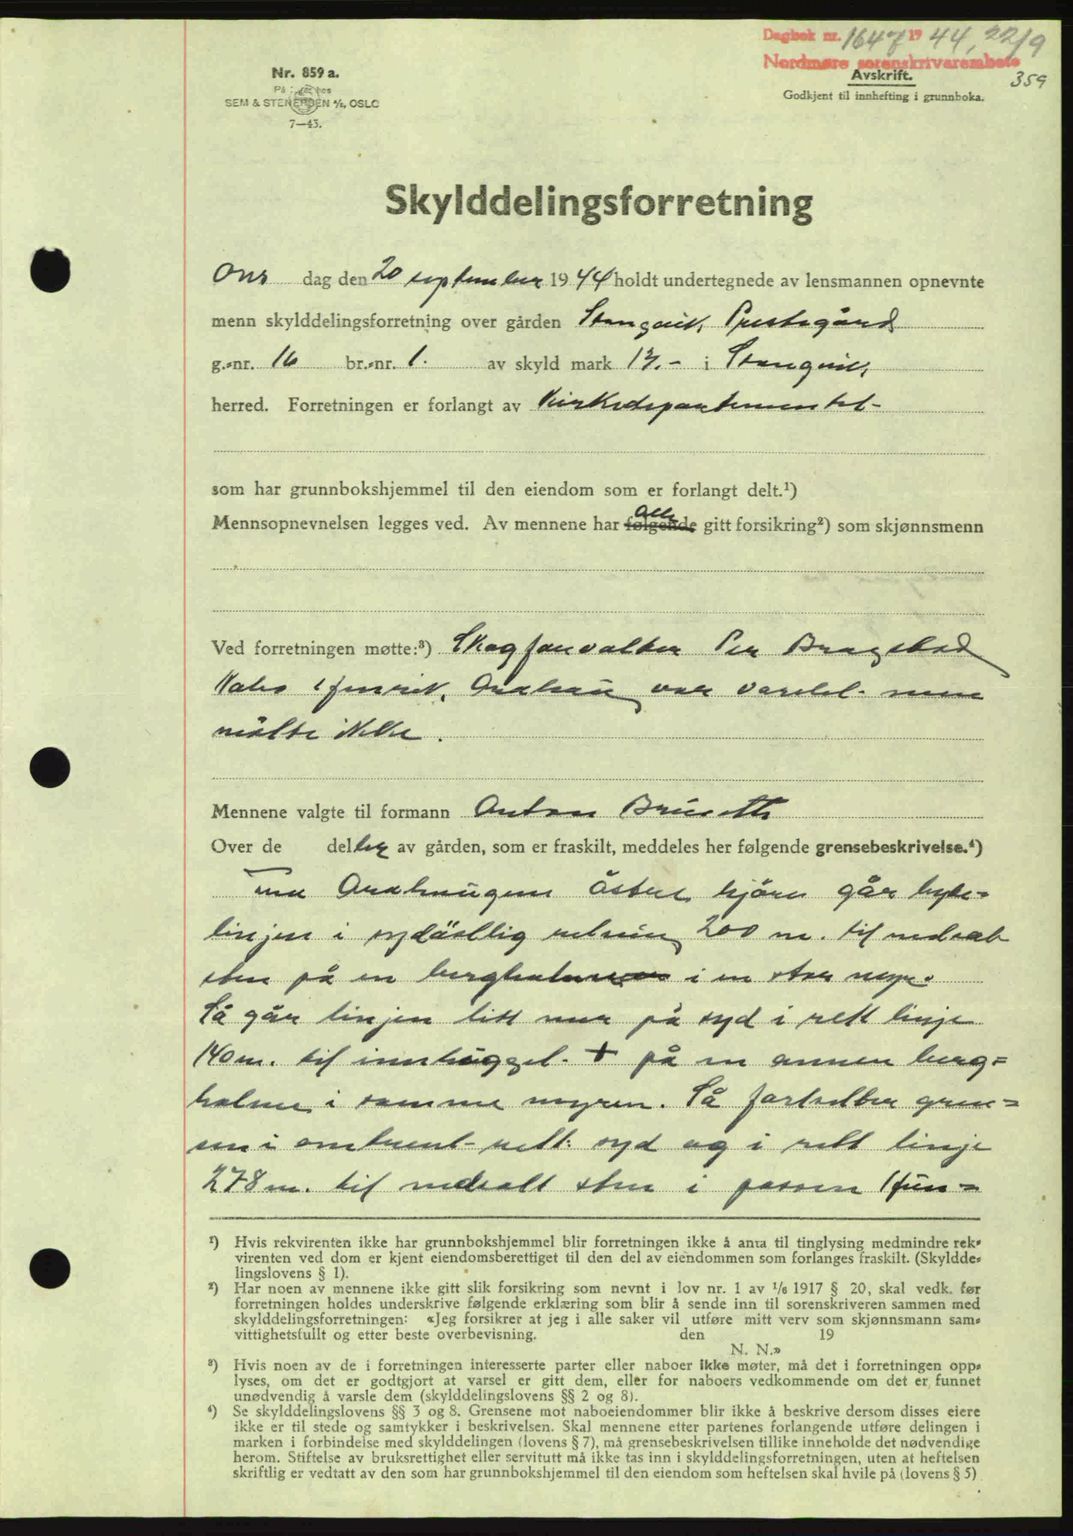 Dagbok nr. 1647 1944, 22/9
Nordmøre sorenskriverembete
359
Nr. 859 a.
SEM & STENERSEN A/S, OSLO
7—43.
Avskrift.
Godkjent til innhefting i grunnboka.
Skylddelingsforretning
Ons dag den 20 september 1944 holdt undertegnede av lensmannen opnevnte
menn skylddelingsforretning over gården Stangvik Prestegård
g.-nr. 16 br.-nr. 1. av skyld mark 17.- i Stangvik
herred. Forretningen er forlangt av Kirkedepartementet
som har grunnbokshjemmel til den eiendom som er forlangt delt.¹)
Mennsopnevnelsen legges ved. Av mennene har følgende alle gitt forsikring²) som skjønnsmenn
Ved forretningen møtte:³) Skogforvalter Per
Nabo var varslet men
møtte ikke.
Mennene valgte til formann Anton
Over de delte av gården, som er fraskilt, meddeles her følgende grensebeskrivelse.⁴)
østre hjørne går byte=
linjen i sydøstlig retning 200 m. til nedsatt
sten på en bergholme i en stor myr.
Så går linjen litt mer på syd i rett linje
140 m. til innhugget + på en annen berg=
holme i samme myren. Så fortsetter gren=
sen i omtrent rett syd og i rett linje
278 m. til nedsatt sten i
¹) Hvis rekvirenten ikke har grunnbokshjemmel blir forretningen ikke å anta til tinglysing medmindre rek-
virenten ved dom er kjent eiendomsberettiget til den del av eiendommen som forlanges fraskilt. (Skyldde-
lingslovens § 1).
²) Har noen av mennene ikke gitt slik forsikring som nevnt i lov nr. 1 av 1/6 1917 § 20, skal vedk. før
forretningen holdes underskrive følgende erklæring som blir å sende inn til sorenskriveren sammen med
skylddelingsforretningen: «Jeg forsikrer at jeg i alle saker vil utføre mitt verv som skjønnsmann sam-
vittighetsfullt og etter beste overbevisning. den 19
N. N.»
³) Hvis noen av de i forretningen interesserte parter eller naboer ikke møter, må det i forretningen opp-
lyses, om det er godtgjort at varsel er gitt dem, eller for naboers vedkommende om det er funnet
unødvendig å varsle dem (skylddelingslovens §§ 2 og 8).
⁴) Se skylddelingslovens §§ 3 og 8. Grensene mot naboeiendommer blir ikke å beskrive dersom disses eiere
ikke er til stede og samtykker i beskrivelsen. Skal mennene etter partenes forlangende utføre delingen i
marken i forbindelse med skylddelingen (lovens § 7), må grensebeskrivelsen tillike inneholde det nødvendige
herom. Stiftelse av bruksrettighet eller servitutt må ikke tas inn i skylddelingsforretningen, uten at heftelsen
skriftlig er vedtatt av den som har grunnbokshjemmel til den eiendom som heftelsen skal hvile på (lovens § 5)